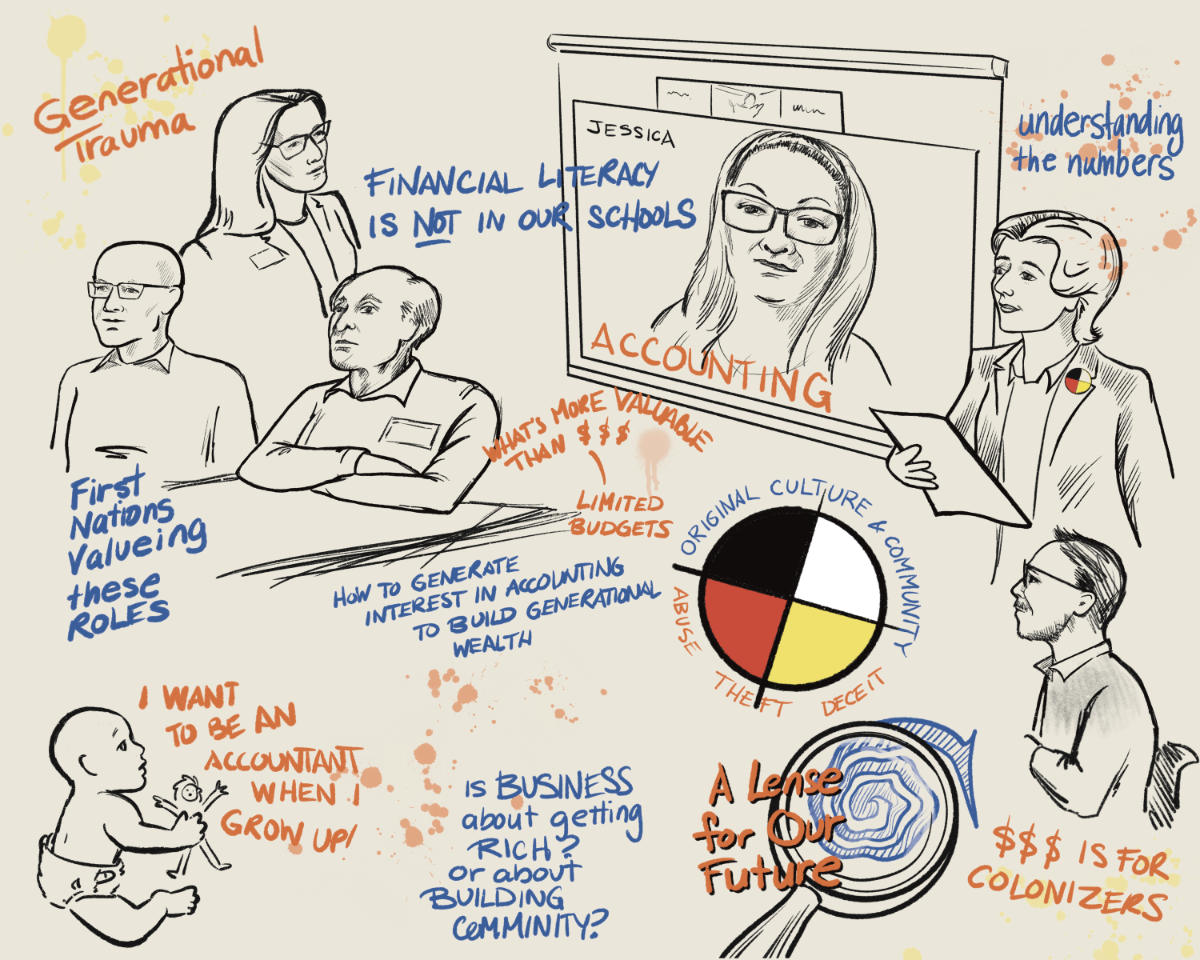 Generational
Trauma
FINANCIAL LITERACY
IS NOT IN OUR SCHOOLS
JESSICA
ACCOUNTING
understanding
the numbers
First
Nations
Valueing
these
ROLES
WHAT'S MORE VALUABLE
THAN $$$
LIMITED
BUDGETS
HOW TO GENERATE
INTEREST IN ACCOUNTING
TO BUILD GENERATIONAL
WEALTH
ORIGINAL CULTURE & COMMUNITY
ABUSE
THEFT
DECEIT
I WANT
TO BE AN
ACCOUNTANT
WHEN I
GROW UP!
IS BUSINESS
about getting
RICH?
or about
BUILDING
COMMINITY?
A Lense
for Our
Future
$$$ IS FOR
COLONIZERS